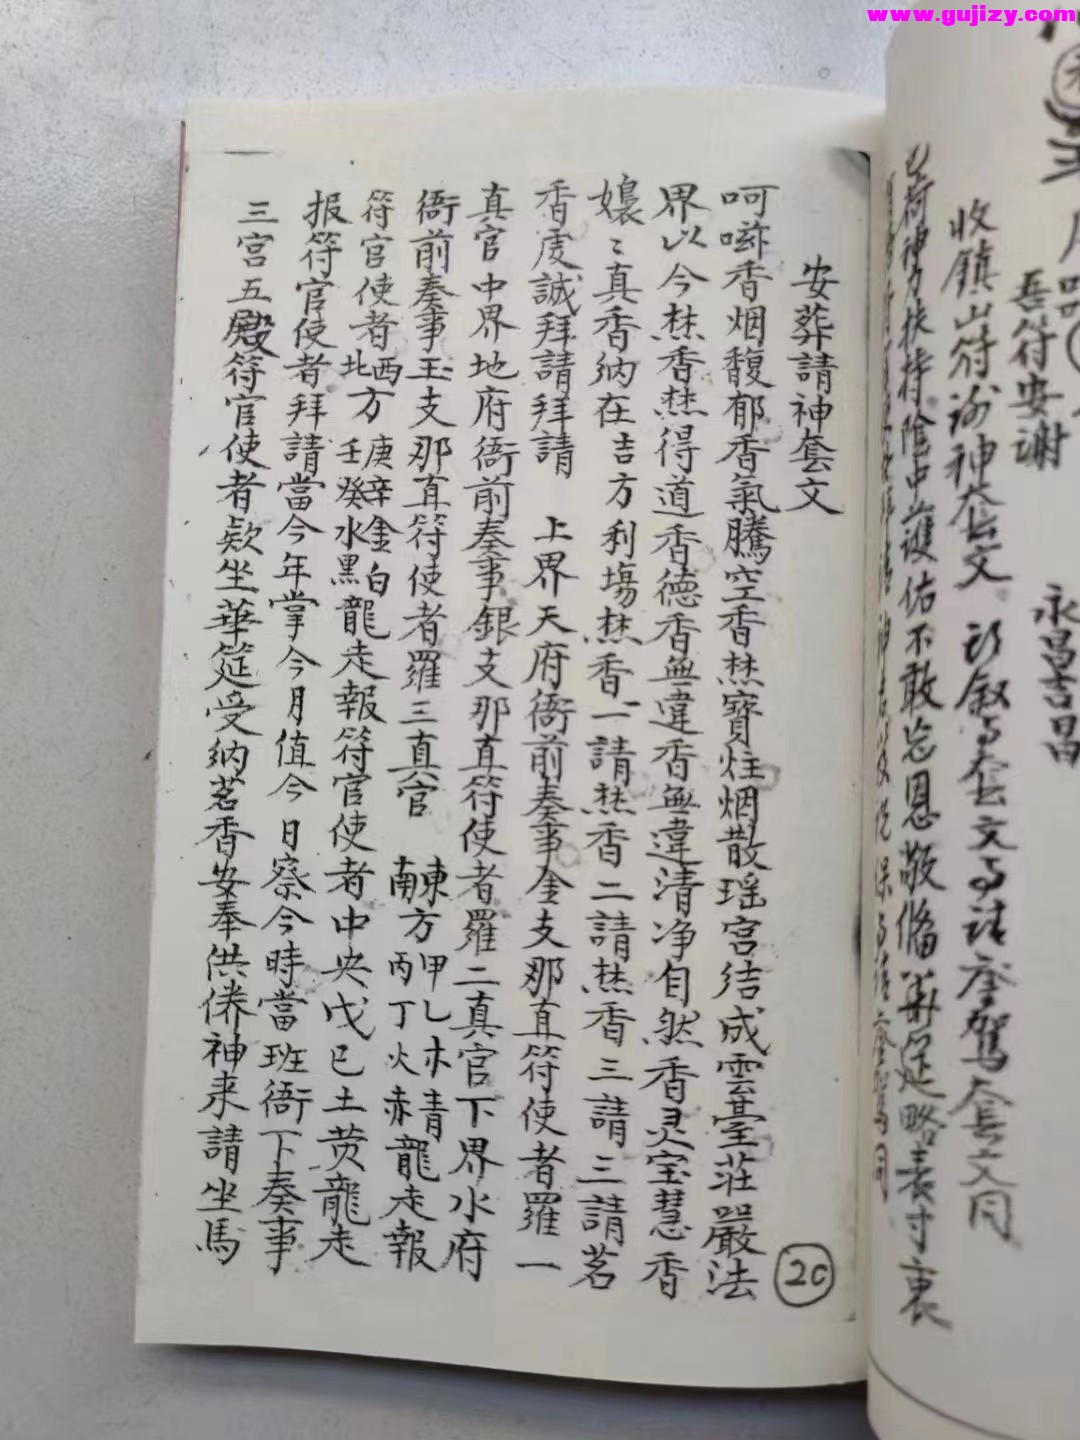 www.gujizy.com
收鎮山符谢神套文
吾符安谢
永昌吉昌
荷神力扶持陰中護佑不敢忘恩敬俻華筵略表寸衷
安葬請神套文
呵嗞香烟馥郁香氣騰空香焚寶炷烟散瑶宫结成雲臺莊嚴法
界以今焚香焚得道香德香無違香無違清净自然香灵宝慧香
嬝〻真香纳在吉方利塲焚香一請焚香二請焚香三請三請茗
香虔誠拜請拜請 上界天府衙前奏事金支那直符使者羅一
真官中界地府衙前奏事銀支那直符使者羅二真官下界水府
衙前奏事玉支那直符使者羅三真官 東南方甲乙木青丙丁火赤龍走報
符官使者西北方庚辛金白壬癸水黑龍走報符官使者中央戊已土黄龍走
报符官使者拜請當今年掌今月值今日察今時當班衙下奏事
三宫五殿符官使者欵坐華筵受纳茗香安奉供佛神来請坐馬
20